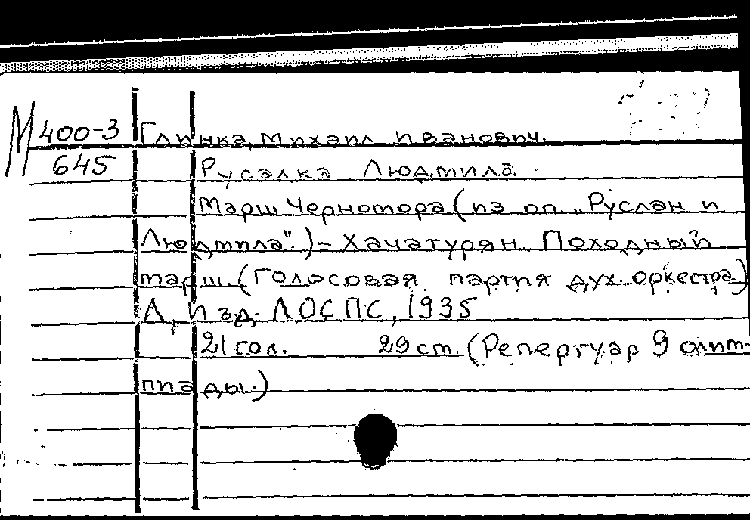 М 400-3 Глинка, Михаил Иванович.
645 Русалка Людмила.
Марш Черномора (из оп. „Руслан и
Людмила".) – Хачатурян. Походный
марш. (Голосовая партия дух. оркестра)
Л, Изд. ЛОСПС, 1935
21 гол. 29 ст. (Репертуар 9 олим-
пиады.)